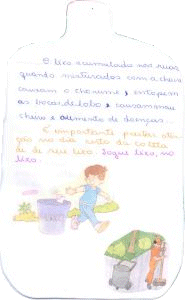 O lixo acumulado nas ruas
quando misturados com a chuva
causam o chorume, e entopem
as bocas de lobo e causam mau
cheiro e aumento de doenças...
É importante prestar aten-
ção no dia certo da coleta
de seu lixo. Jogue lixo, no
lixo.
LIXO